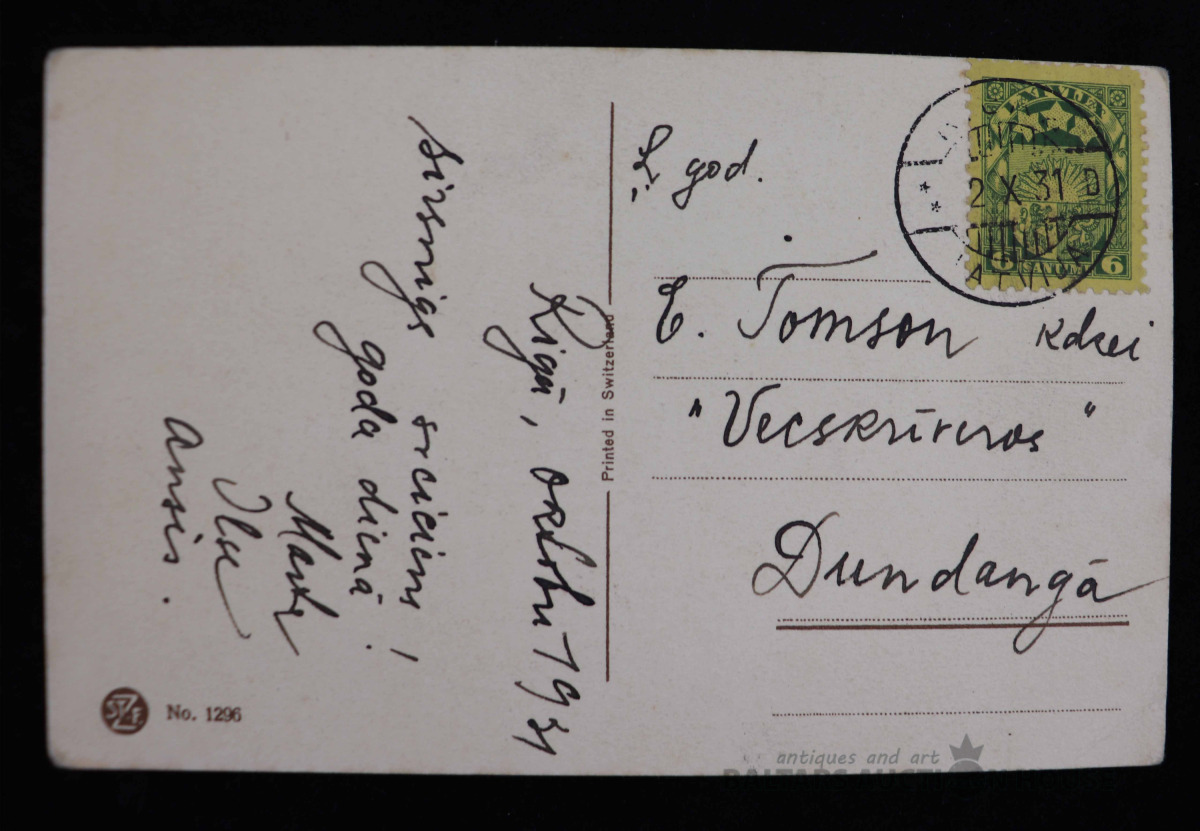 Rīgā, oktobrī 1931
Sirsnīgs sveiciens!
goda dienā
Marta
Ilse
Ansis.
Ļ. god.
E. Tomson kdzei
"Vecskrīveros"
Dundangā
LATVIJA
2 X 31 D
LATVIJA
6 SANTIMI 6
Printed in Switzerland
No. 1296
antiques and art